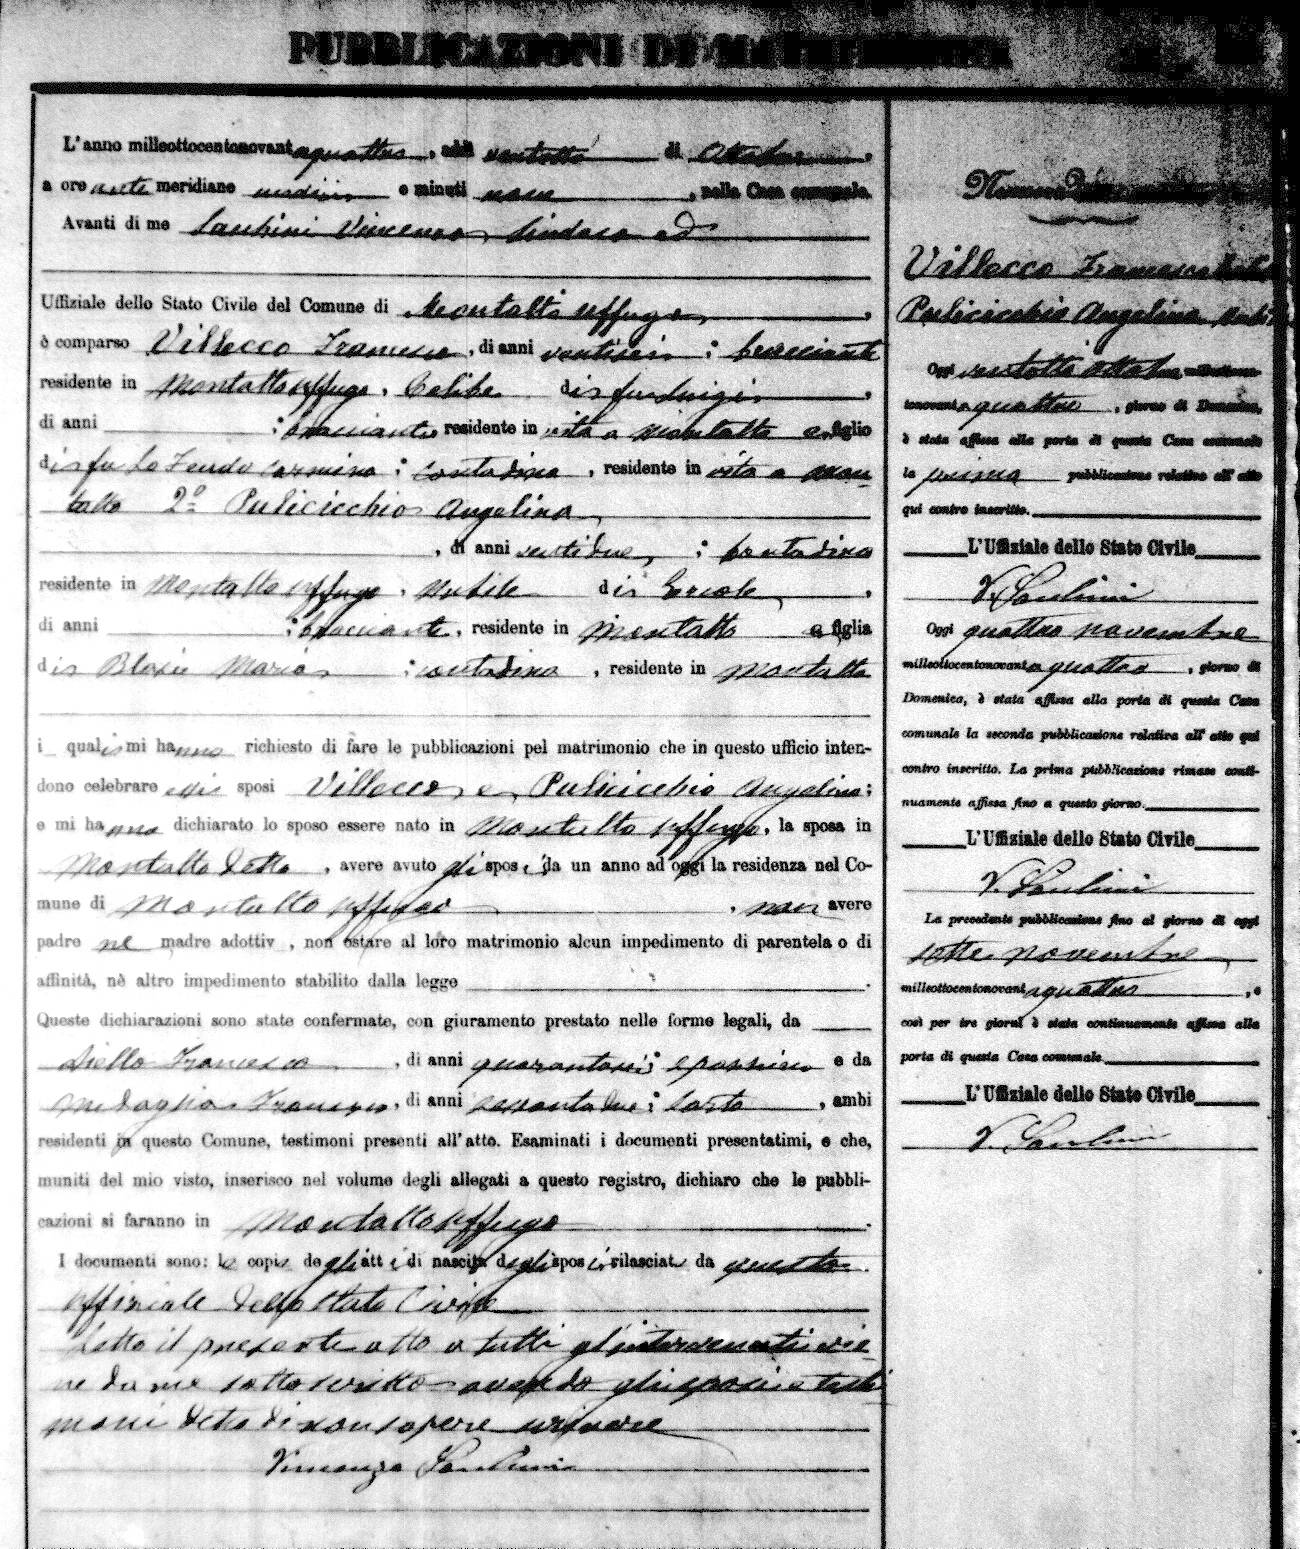 PUBBLICAZIONI DI
L'anno milleottocentonovantaquattro, addì ventotto di Ottobre,
a ore ante meridiane undici e minuti nove, nella Casa comunale.
Avanti di me Vincenzo Sindaco ed
Uffiziale dello Stato Civile del Comune di Montalto Uffugo,
è comparso Villecco Francesco, di anni ventisei; bracciante
residente in Montalto Uffugo, Celibe di fu Luigi,
di anni ; bracciante residente in vita a Montalto e figlio
di fu Lo Feudo Carmina; contadina, residente in vita a Mon-
talto 2º Pulicicchio Angelina
, di anni ventidue, ; contadina
residente in Montalto Uffugo, Nubile di Ercole,
di anni ; bracciante, residente in Montalto e figlia
di Blasi Maria ; contadina, residente in Montalto
i quali mi hanno richiesto di fare le pubblicazioni pel matrimonio che in questo ufficio inten-
dono celebrare essi sposi Villecco e Pulicicchio Angelina;
e mi hanno dichiarato lo sposo essere nato in Montalto Uffugo, la sposa in
Montalto detto, avere avuto gli sposi da un anno ad oggi la residenza nel Co-
mune di Montalto Uffugo, non avere
padre nè madre adottiv , non ostare al loro matrimonio alcun impedimento di parentela o di
affinità, nè altro impedimento stabilito dalla legge .
Queste dichiarazioni sono state confermate, con giuramento prestato nelle forme legali, da
Aiello Francesco, di anni quarantasei; e da
Medaglia Francesco, di anni sessantadue; Sarto, ambi
residenti in questo Comune, testimoni presenti all'atto. Esaminati i documenti presentatimi, e che,
muniti del mio visto, inserisco nel volume degli allegati a questo registro, dichiaro che le pubbli-
cazioni si faranno in Montalto Uffugo.
I documenti sono: le copie degli atti di nascita degli sposi rilasciate da questo
Uffiziale dello Stato Civile
Letto il presente atto a tutti gl'intervenuti vie-
ne da me sottoscritto avendo gli sposi e testi
moni detto di non sapere scrivere
Vincenzo
Numero
Villecco Francesco
Pulicicchio Angelina
Oggi ventotto Ottobre milleottocen-
tonovantaquattro, giorno di Domenica,
è stata affissa alla porta di questa Casa comunale
la prima pubblicazione relativa all'atto
qui contro inscritto.
L'Uffiziale dello Stato Civile
V.
Oggi quattro novembre
milleottocentonovantaquattro, giorno di
Domenica, è stata affissa alla porta di questa Casa
comunale la seconda pubblicazione relativa all'atto qui
contro inscritto. La prima pubblicazione rimase conti-
nuamente affissa fino a questo giorno.
L'Uffiziale dello Stato Civile
V.
La precedente pubblicazione fino al giorno di oggi
sette novembre
milleottocentonovantaquattro, e
così per tre giorni è stata continuamente affissa alla
porta di questa Casa comunale.
L'Uffiziale dello Stato Civile
V.